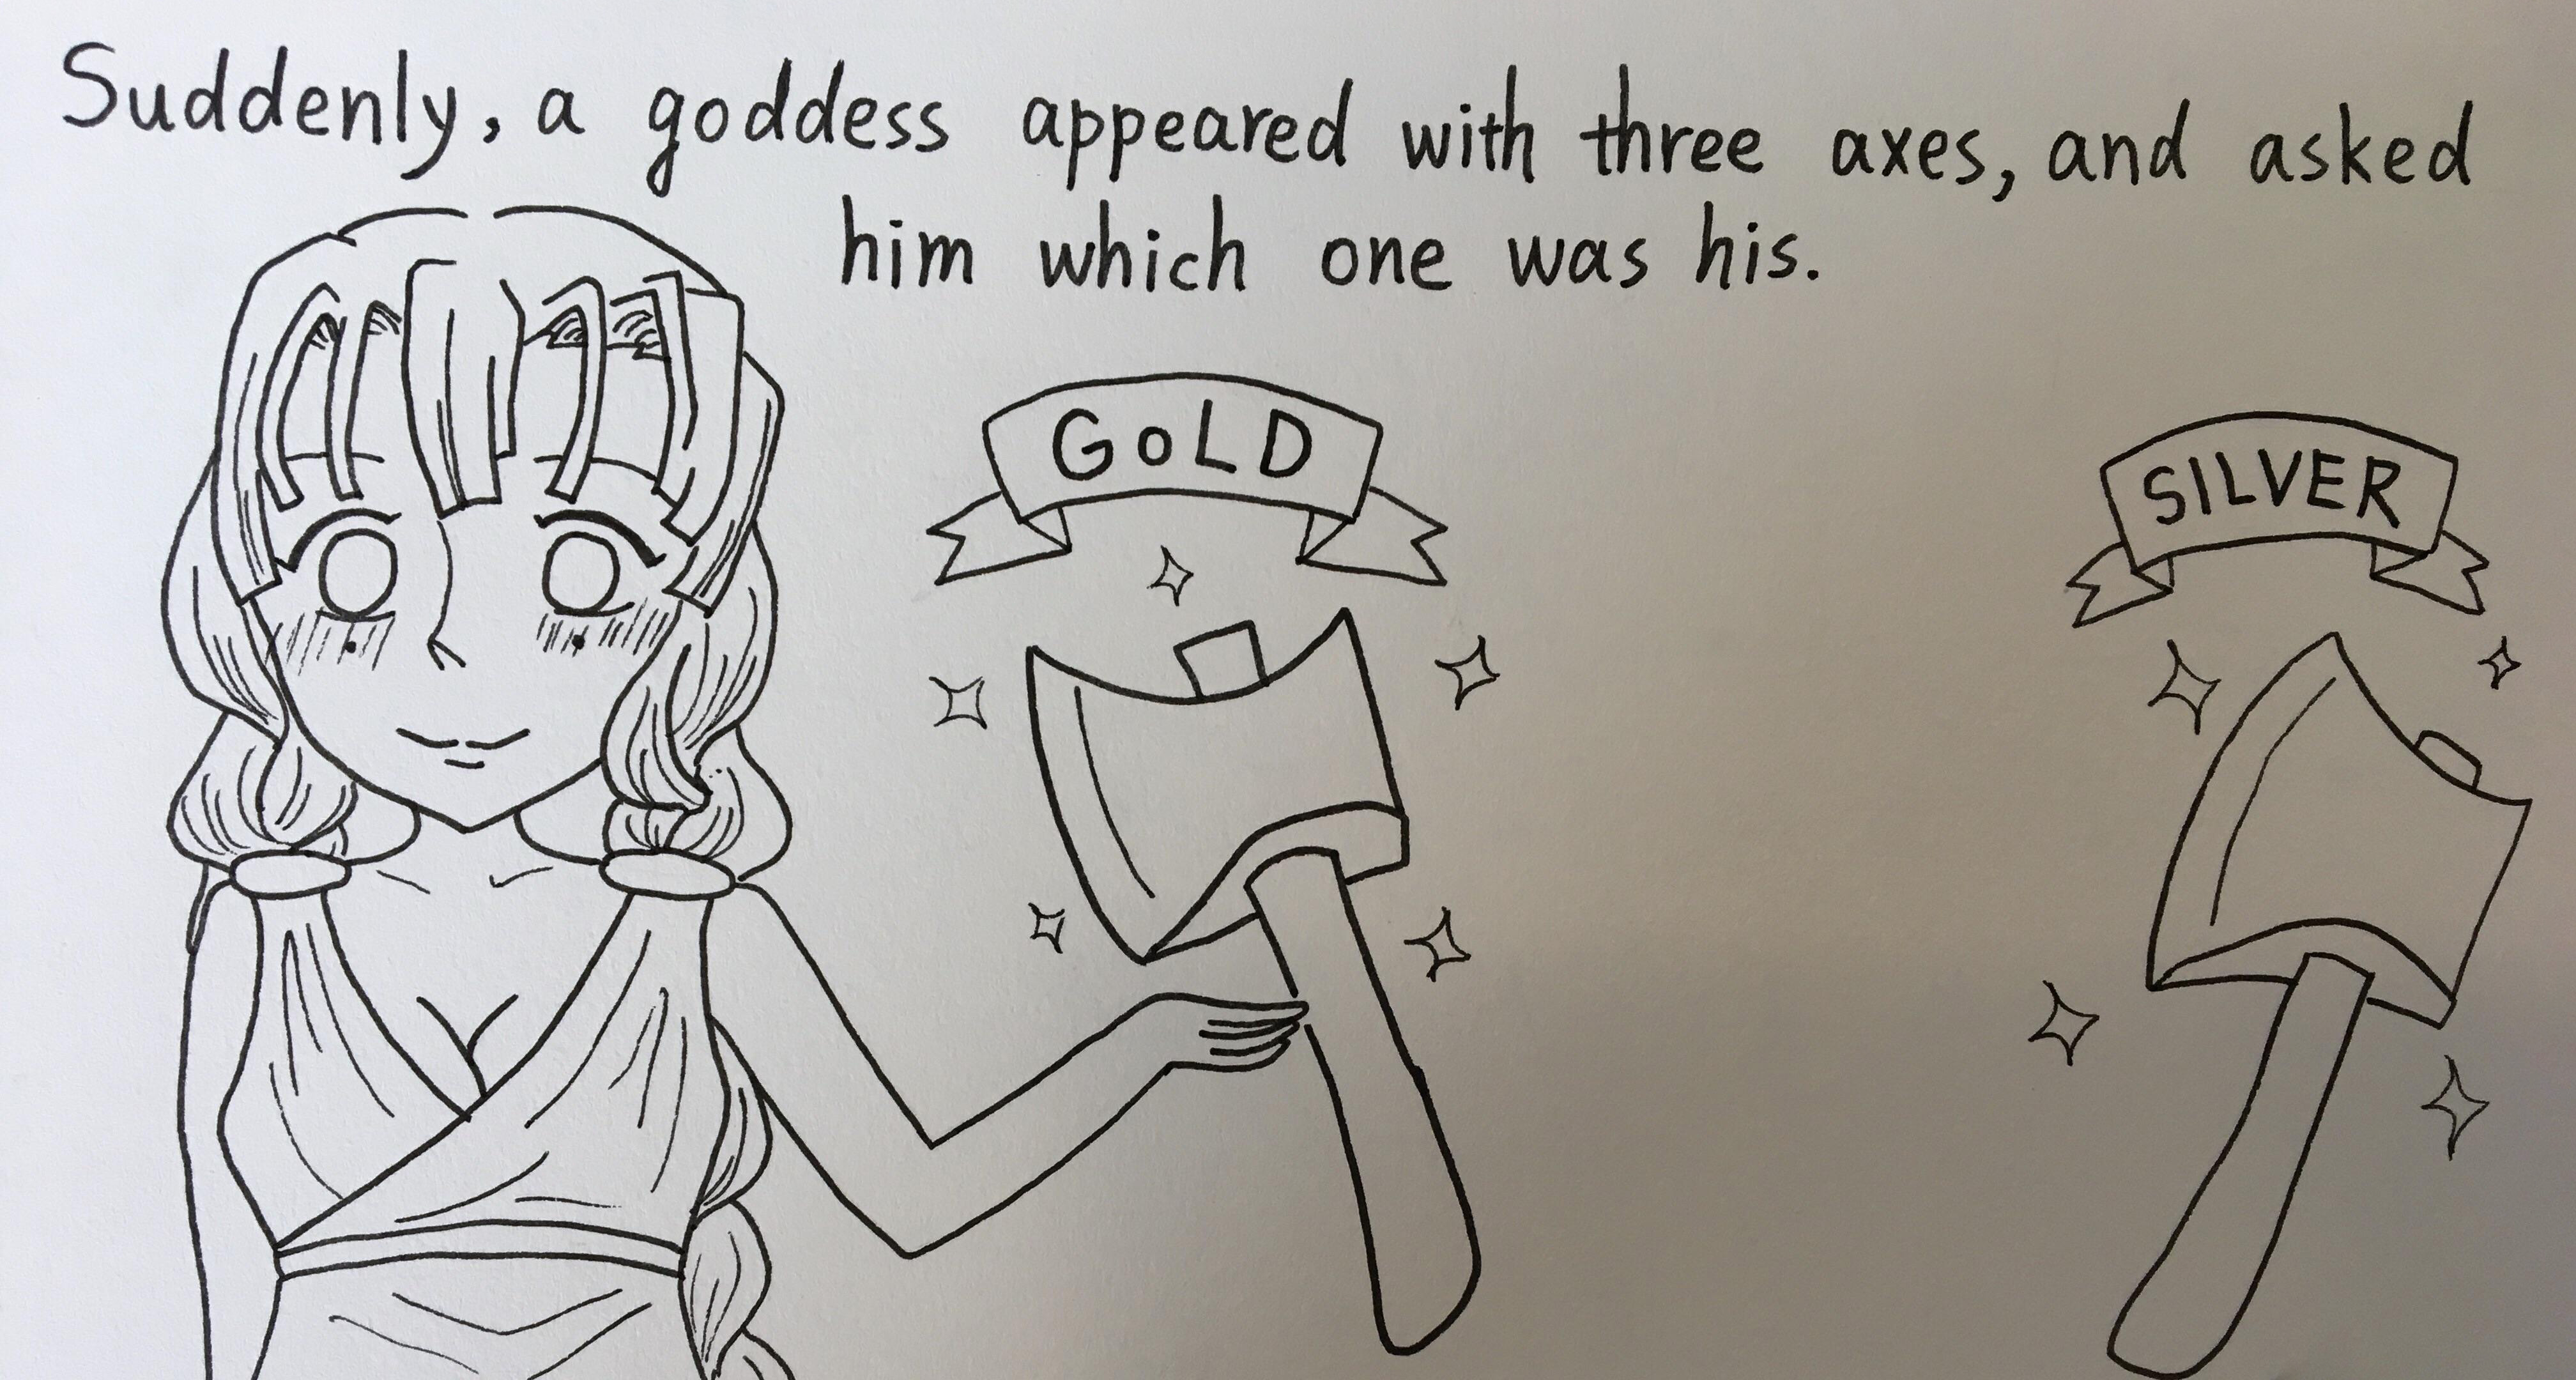 Suddenly, a goddess appeared with three axes, and asked
him which one was his.
GoLD
SILVER